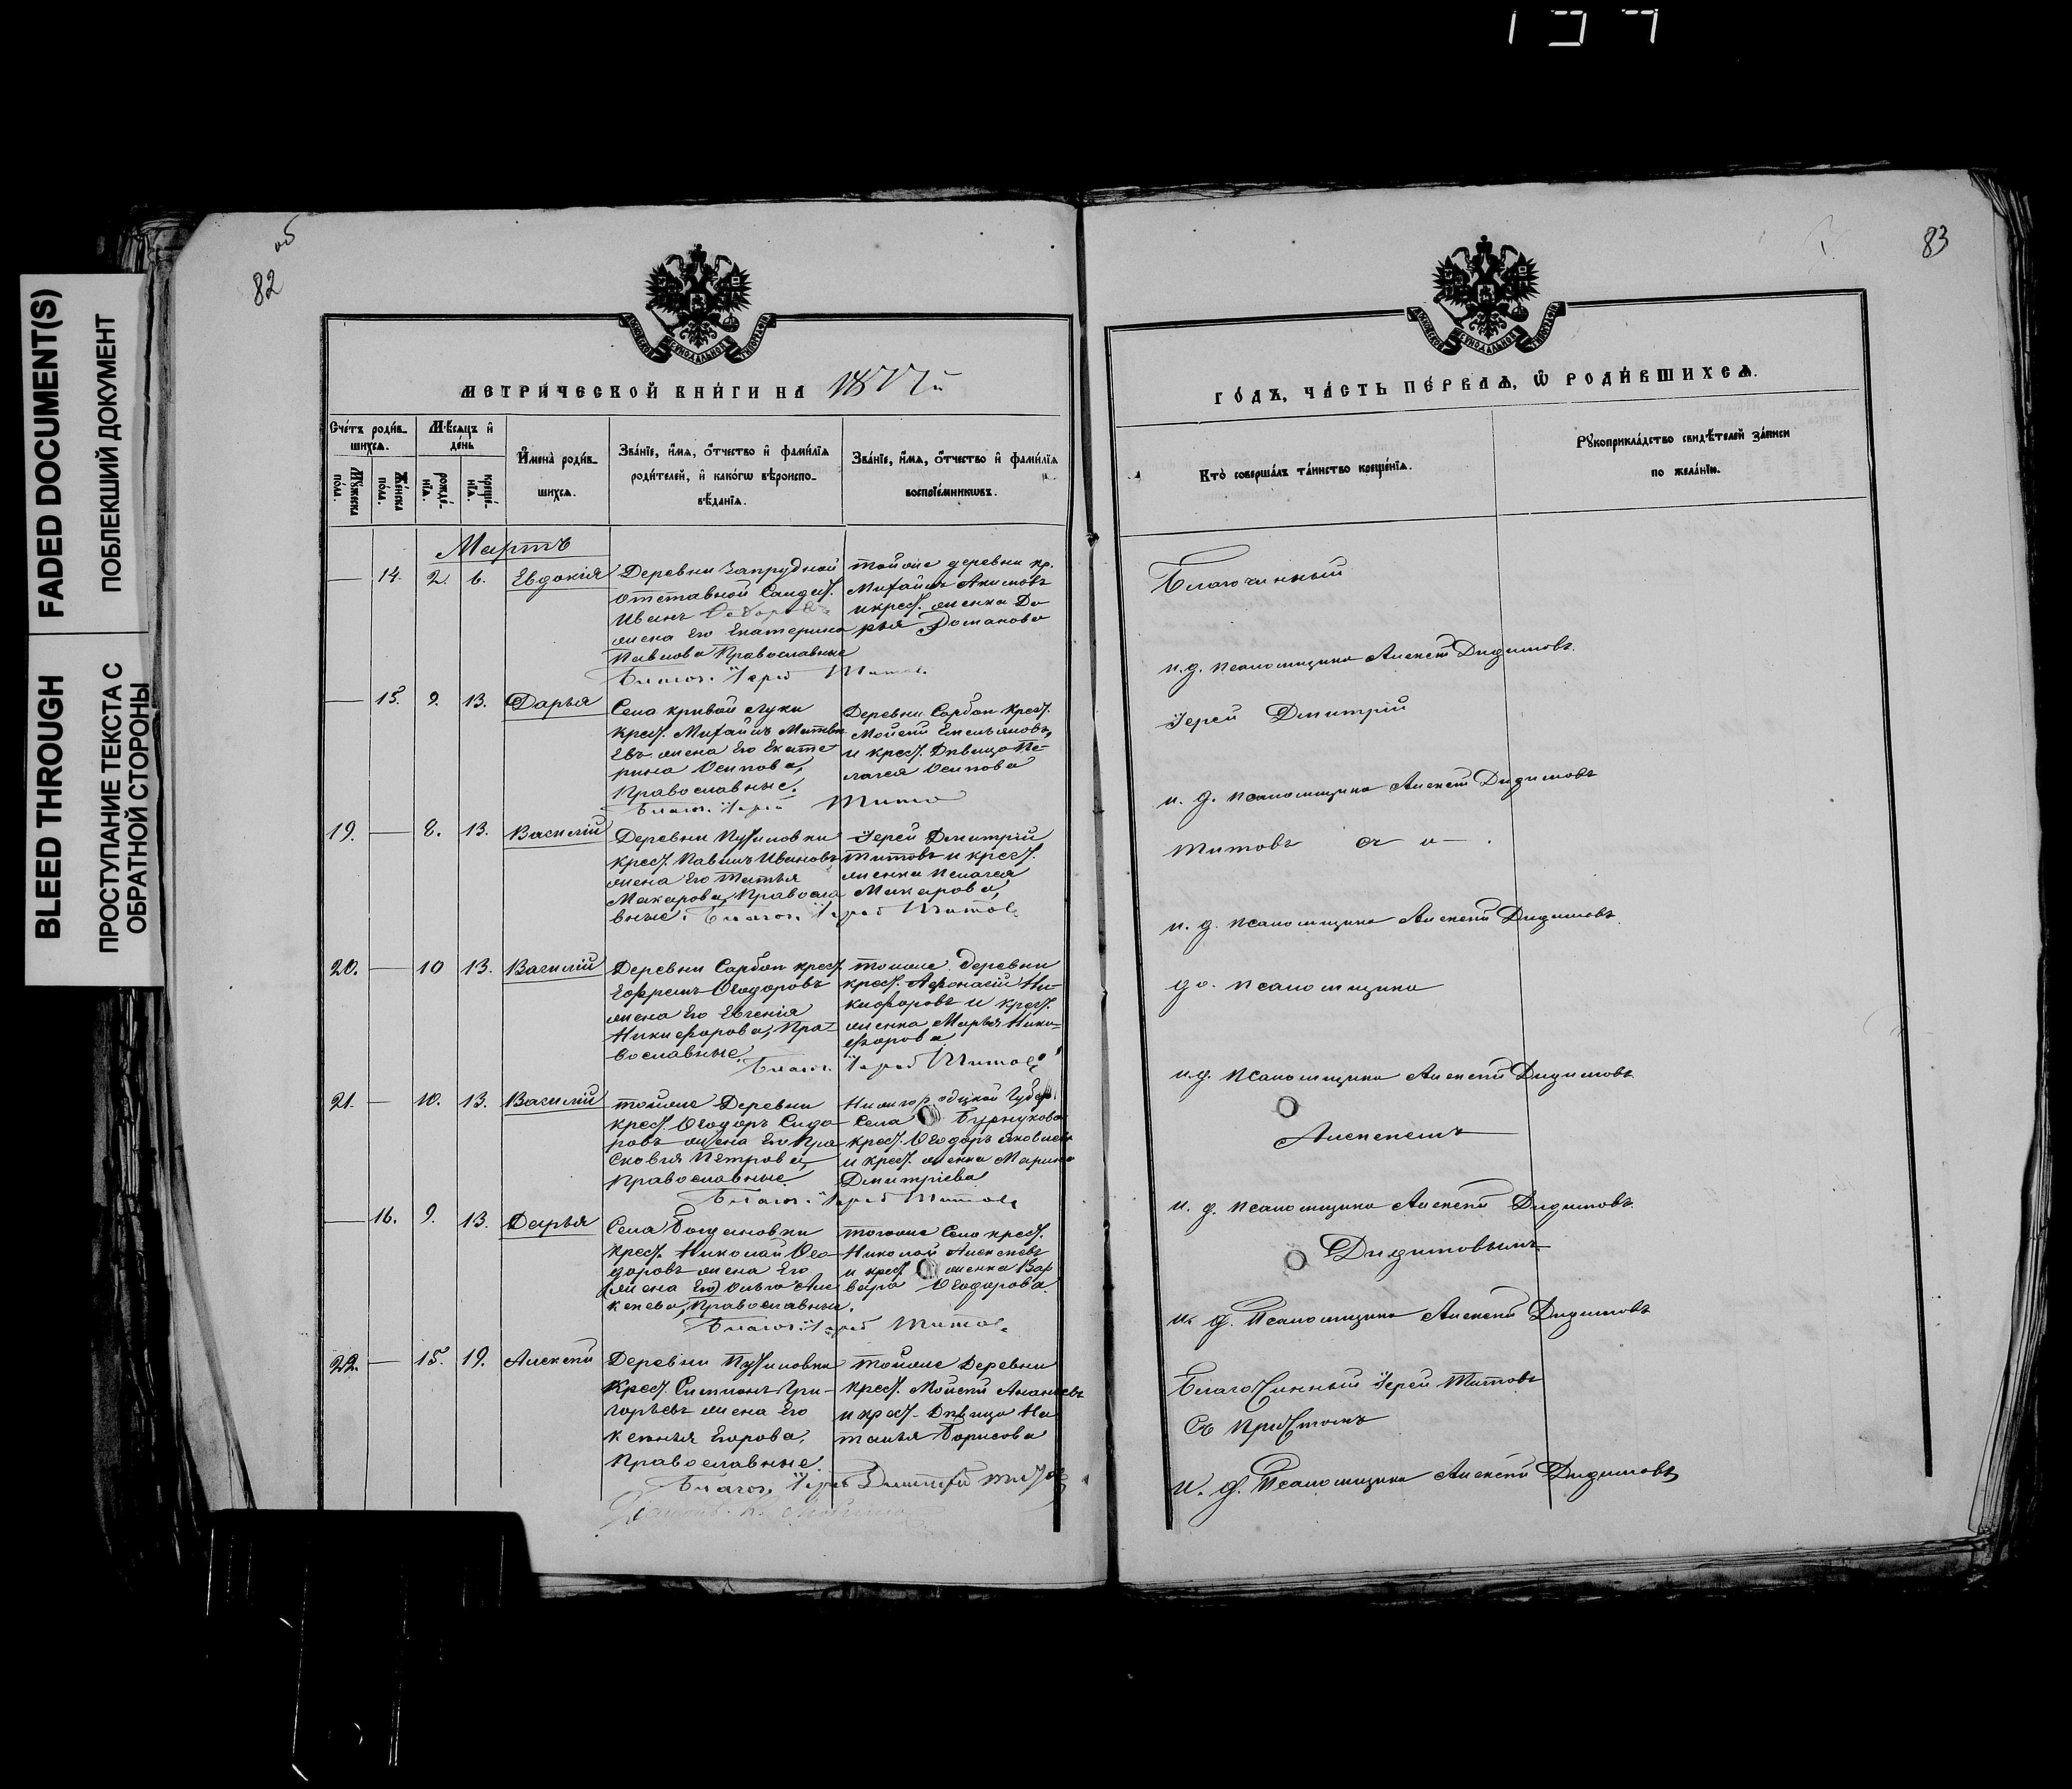 BLEED THROUGH FADED DOCUMENT(S)
ПРОСТУПАНИЕ ТЕКСТА С ОБРАТНОЙ СТОРОНЫ
ПОБЛЕКШИЙ ДОКУМЕНТ
82
об
МЕТРИ́ЧЕСКОЙ КНИ́ГИ НА 1877й
Сче́тъ роди́в-
шихсѧ.
Мꙋ́жеска по́ла.
Же́нска по́ла.
Мѣ́сѧцъ и҆
де́нь
рожде́-
нїѧ.
креще́-
нїѧ.
И҆мена̀ роди́в-
шихсѧ.
Зва́нїе, и҆́мѧ, о҆́тчество и҆ фами́лїѧ
роди́телей, и҆ како́гѡ вѣроиспо-
вѣ́данїѧ.
Зва́нїе, и҆́мѧ, о҆́тчество и҆ фами́лїѧ
воспрїе́мникѡвъ.
Мартъ
— 14. 2. 6. Евдокія
Деревни Запрудной
отставной Солдат.
Иванъ
жена Его Екатерина
Павлова Православные
Благоч. Іерей Титов
тойже деревни кр.
Михаилъ Акимовъ
и крест. женка Да
рья Романова
— 15. 9. 13. Дарья
Села кривой луки
крест. Михаилъ Матве
евъ жена Его Екате-
рина Осипова,
Православные.
Благоч. Іерей Титов
Деревни Сарбай Крест.
Мойсей Емельяновъ,
и крест. Дѣвица Пе-
лагея Осипова
19. — 8. 13. Василій
крест. Павелъ Ивановъ
жена Его Татья
Макарова, Правосла
вные. Благоч. Іерей Титов
Іерей Дмитрій
Титовъ и крест.
женка Пелагея
Макарова,
20. — 10 13. Василій
Деревни Сарбай крест.
Ефремъ Ѳеодоровъ
жена Его Евгенія
Никифорова, Пра-
вославные.
Благоч. Іерей Титов
тойже деревни
крест. Афонасій Ни-
кифоровъ и крест.
женка Марья Ники-
форова
21. — 10. 13. Василій
тойже Деревни
крест. Ѳеодоръ Сидо
ровъ жена Его Пра
сковья Петрова,
Православные.
Благоч. Іерей Титов
Нижегородской Губер.
Села Бурнуково
крест. Ѳеодоръ Яковлевъ
и крест. женка Марина
Дмитріева
— 16. 9. 13. Дарья
Села Богдановки
крест. Николай Ѳео
доровъ жена Его
(жена Его) Ольга Але
ксеева, Православные.
Благоч. Іерей Титов
тогоже Села крест.
Николай Алексеевъ
и крест. женка Вар
вара Ѳеодорова.
22. — 15. 19. Алексей
Крест. Симионъ Гри-
горьевъ жена Его
Ксенья Егорова,
Православные
Благоч. Іерей Димитрій Титов
тойже Деревни
крест. Мойсей Ананьевъ
и крест. Дѣвица На
талья Борисова
83
ГО́ДЪ, ЧА́СТЬ ПЕ́РВАѦ, Ѡ҆ РОДИ́ВШИХСѦ.
Кто̀ соверша́лъ та́инство креще́нїѧ.
Рꙋкоприкла́дство свидѣ́телей за́писи
по жела́нїю.
Благочинный
и. д. псаломщика Алексей Дидимовъ
Іерей Дмитрій
и. д. псаломщика Алексей Дидимовъ
Титовъ съ и —.
и. д. псаломщика Алексей Дидимовъ
до. псаломщика
и. д. псаломщика Алексей Дидимовъ
Алексеемъ
и. д. псаломщика Алексей Дидимовъ
Дидимовымъ
и. д. Псаломщика Алексей Дидимовъ
Благочинный Іерей Титовъ
Съ Причтомъ
и. д. Псаломщика Алексей Дидимовъ